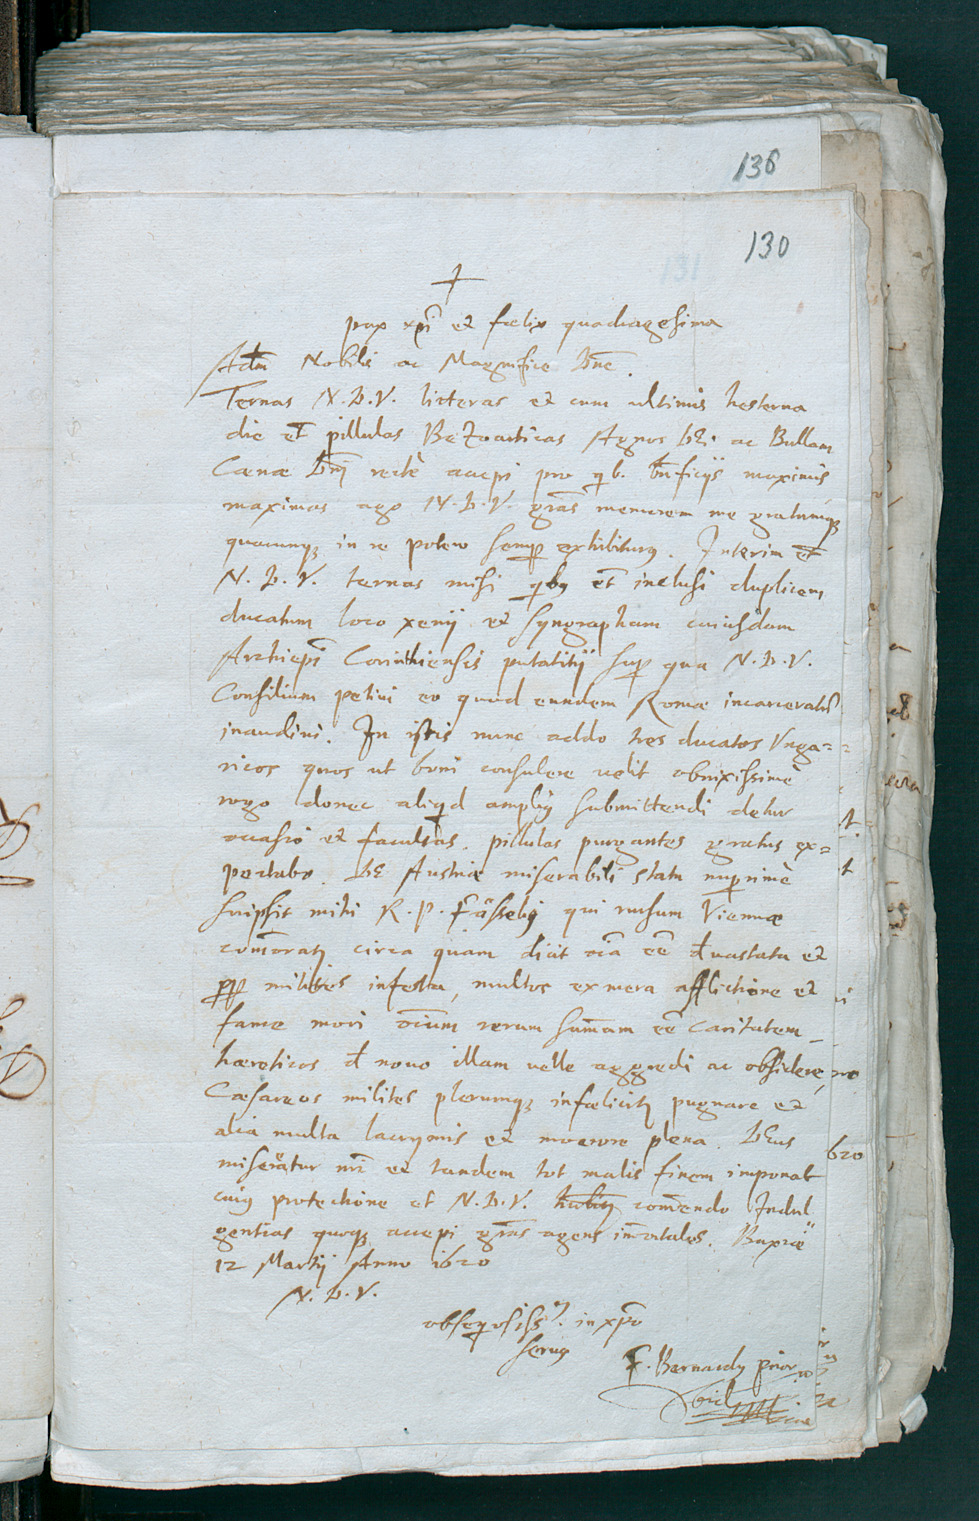 136
130
131
pax xpi et fœlix quadragesima
Adm Nobilis ac Magnifice Dne.
Ternas N.D.V. litteras et cum ultimis hesterna
die et pillulas Bezoarticas Agnos Dei ac Bullam
Cœnæ Dni rectè accepi pro qb. bnficijs maximis
maximas ago N.D.V. gras memorem me gratumq
quacunq in re potero semp exhibiturus. Interim et
N.D.V. ternas misi qbus et inclusi duplicem
ducatum loco xenij et syngrapham cuiusdam
Archiepi Corinthiensis putatitij sup qua N.D.V.
Consilium petivi eo quod eundem Romæ incarceratu
inaudivi. In istis nunc addo tres ducatos Unga=
ricos quos ut boni consulere velit obnixissimè
rogo donec aliqd amplius submittendi detur
occasio et facultas. pillulas purgantes gratus ex=
pectabo. DE Austriæ miserabili statu nuprimè
scripsit mihi R.P. qui rursum Viennæ
comoratur circa quam dicit oia ee devastata et
milites infesta, multos ex mera afflictione et
fame mori oium rerum sumam ee caritatem
hæreticos de novo illam velle aggredi ac obsidere,
Cæsareos milites plerumq infœliciter pugnare et
alia multa lacrymis et mœrore plena. DEus
misereatur nri et tandem tot malis finem imponat
cuius protectione et N.D.V. comendo Indul
gentias quoq accepi gras agens imortales. Buxiæ
12 Martij Anno 1620
N.D.V.
obseqosiss. in xpo
servus
F. Bernardus prior
620